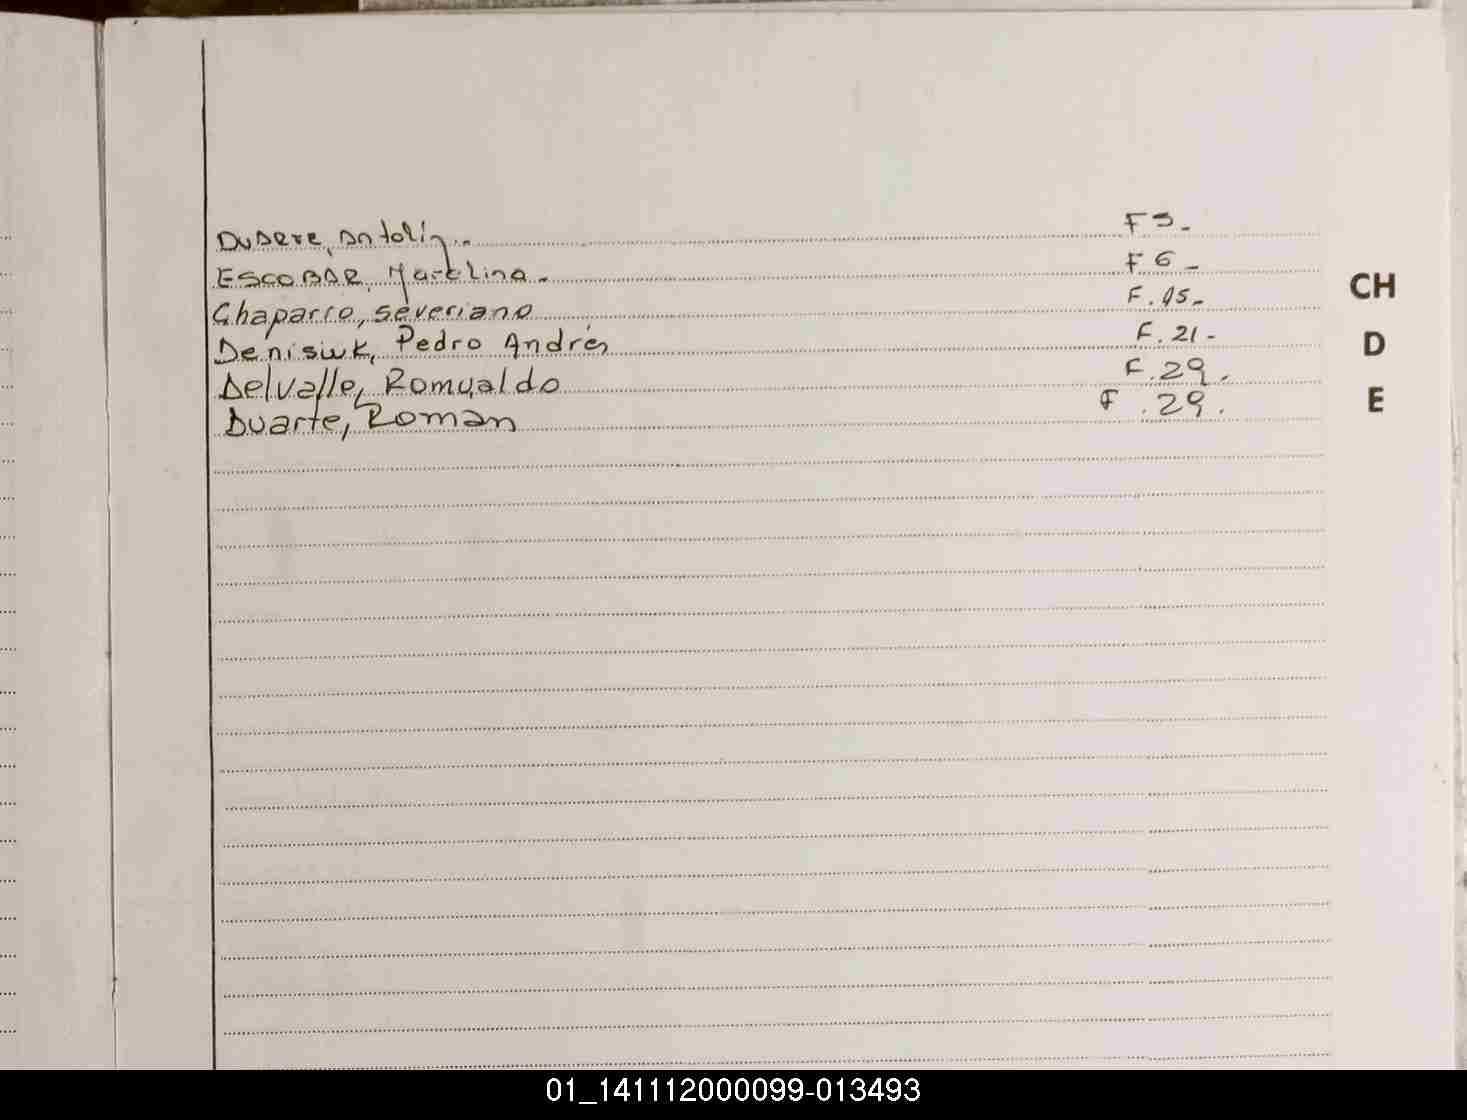 Duarte, Antolin.. F 3-
ESCOBAR, Marcelina. F 6-
Chaparro, Severiano F. 15-
CH
Denisiuk, Pedro Andrés F. 21-
D
Delvalle, Romualdo F. 29.
Duarte, Roman F. 29.
E
01_141112000099-013493